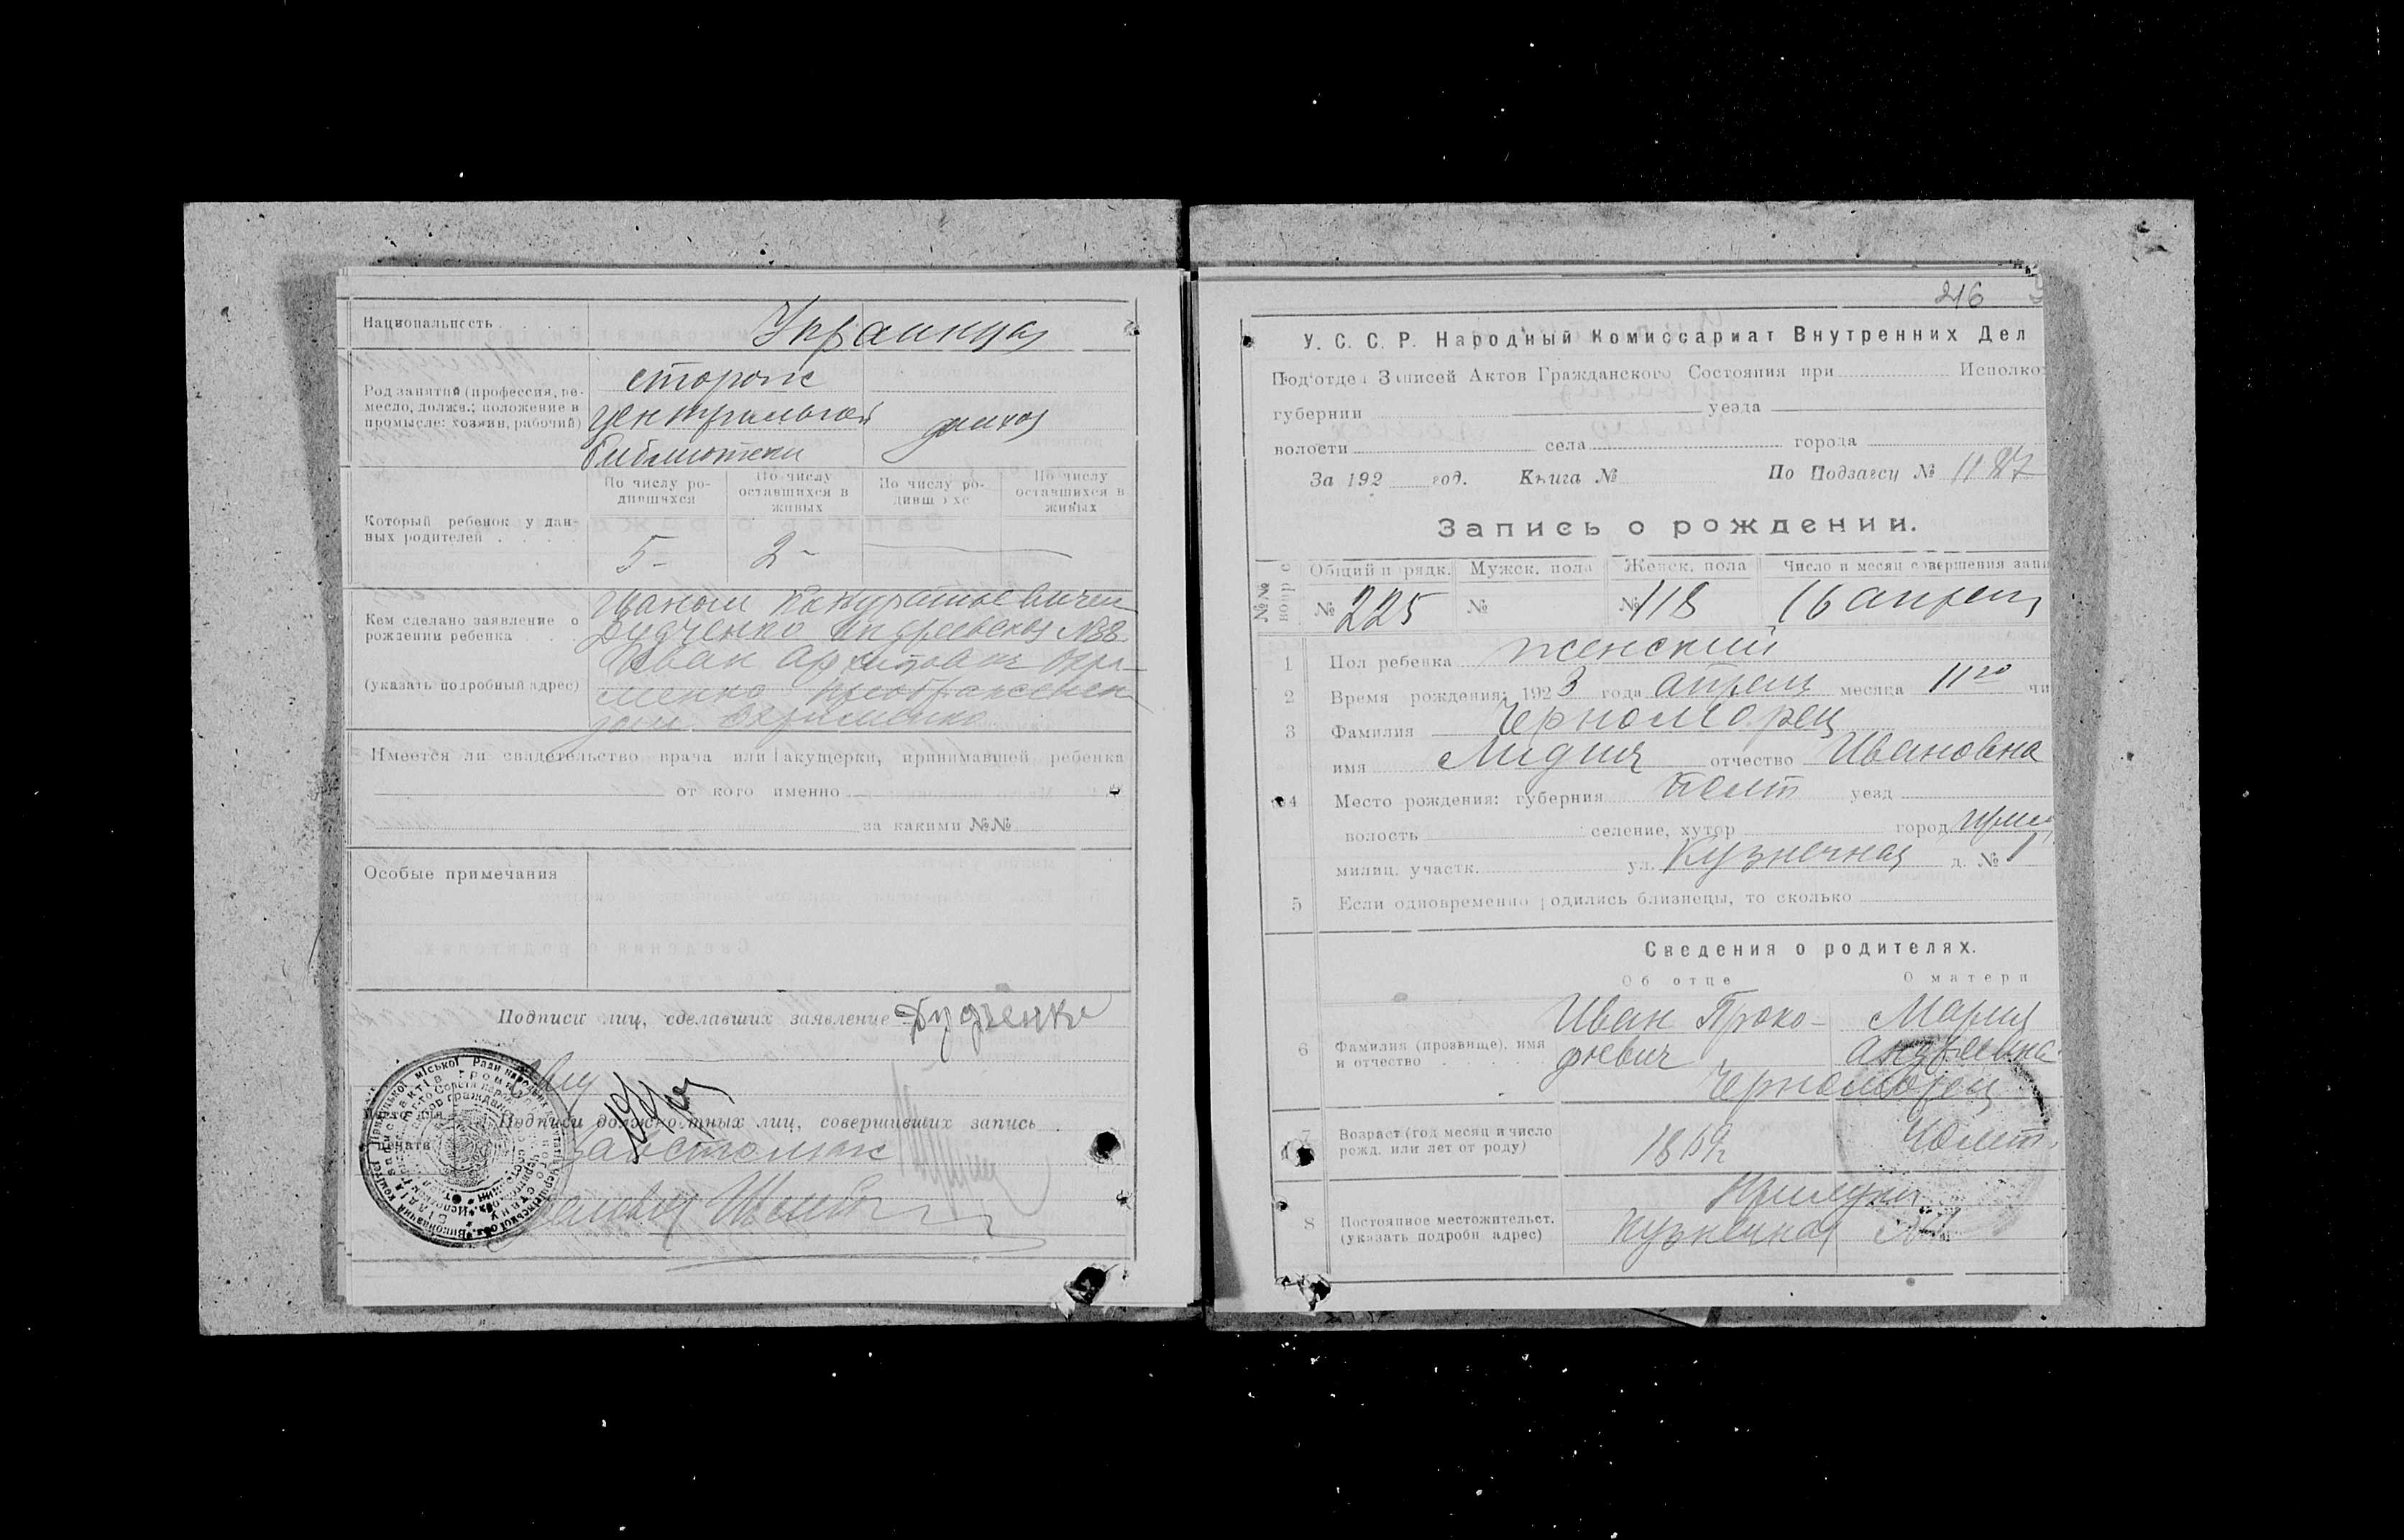 Национальность Украинцы
Род занятий (профессия, ре-
месло, должн.; положение в
промысле: хозяин, рабочий)
сторож
центральной
библиотеки
По числу ро-
дившихся
По числу
оставшихся в
живых
По числу ро-
дивш хс
По числу
оставшихся в
живых
Который ребенок у дан-
ных родителей . . . .
5- 2-
Кем сделано заявление о
рождении ребенка . . .
(указать подробный адрес)
Дудченко Андреевская №38
Иван
Имеется ли свидетельство врача или акушерки, принимавшей ребенка
от кого именно
за какими №№
Особые примечания
Подписи лиц, сделавших заявление Дудченко
Подписи должностных лиц, совершивших запись
216
У. С. С. Р. Народный Комиссариат Внутренних Дел
Подотдел Записей Актов Гражданского Состояния при Исполко
губернии уезда
волости села города
За 192 год. Книга № По Подзагсу № 1187
Запись о рождении.
Общий п рядк. Мужск. пола Женск. пола Число и месяц совершения запи
№ 225 № № 118 16 апреля
1 Пол ребенка женский
2 Время рождения: 1923 года апрель месяца 11го чи
3 Фамилия Черноморец
имя Лидия отчество Ивановна
4 Место рождения: губерния Полт уезд
волость селение, хутор город
милиц. участк. ул. Кузнечная д. № 1
5 Если одновременно родились близнецы, то сколько
Сведения о родителях.
Об отце О матери
6 Фамилия (прозвище), имя
и отчество
Иван Проко-
фиевич
Мария
Андреевна
Черноморец
7 Возраст (год месяц и число
рожд. или лет от роду)
8 Постоянное местожительст.
(указать подробн адрес)
Прилуки
Кузнечная №1